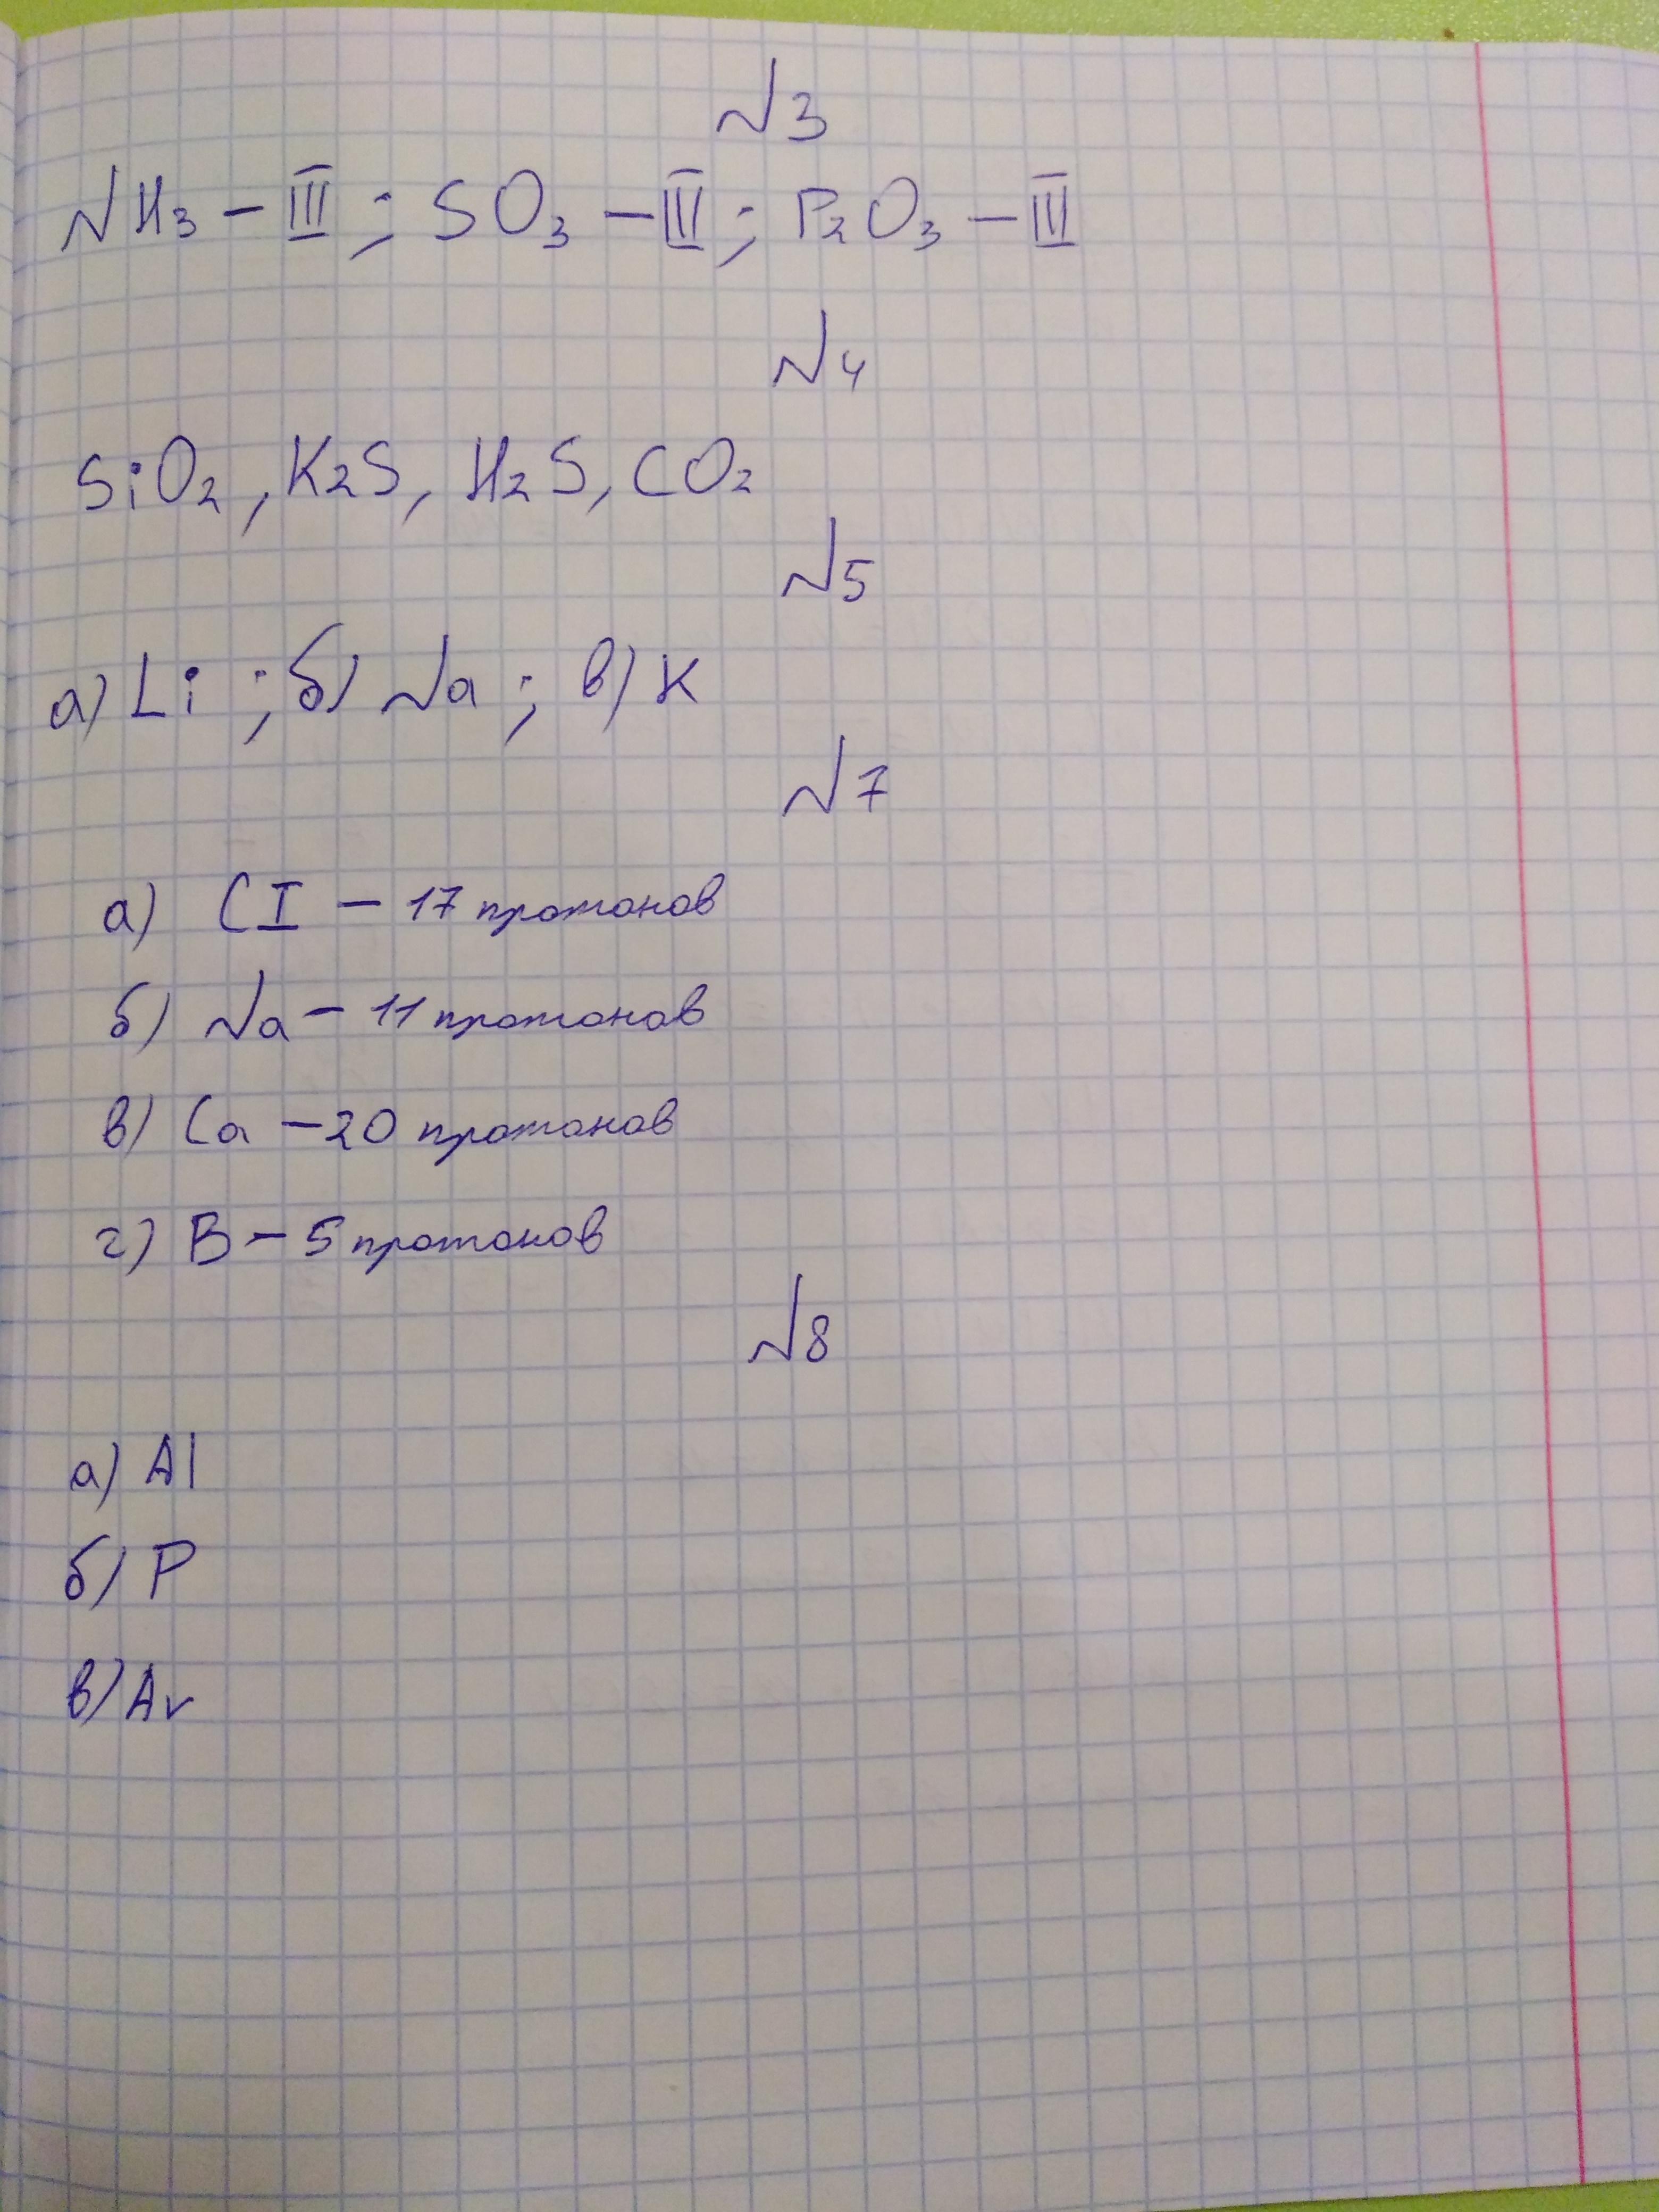 №3
NH₃ – III ; SO₃ – III ; P₂O₃ – III
№4
SiO₂, K₂S, H₂S, CO₂
№5
а) Li ; б) Na ; в) K
№7
а) CI – 17 протонов
б) Na – 11 протонов
в) Ca – 20 протонов
г) B – 5 протонов
№8
а) Al
б) P
в) Ar